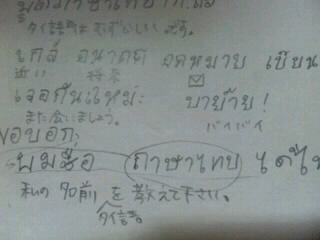 タイ語はむずかしいです。
ใกล้ อนาคต จดหมาย เขียน
近い 将来
เจอกันใหม่ะ บายบ้าย!
また会いましょう。 バイバイ
ขอบอก
ผมชื่อ ภาษาไทย ได้ไ
私の名前を教えて下さい。
タイ語